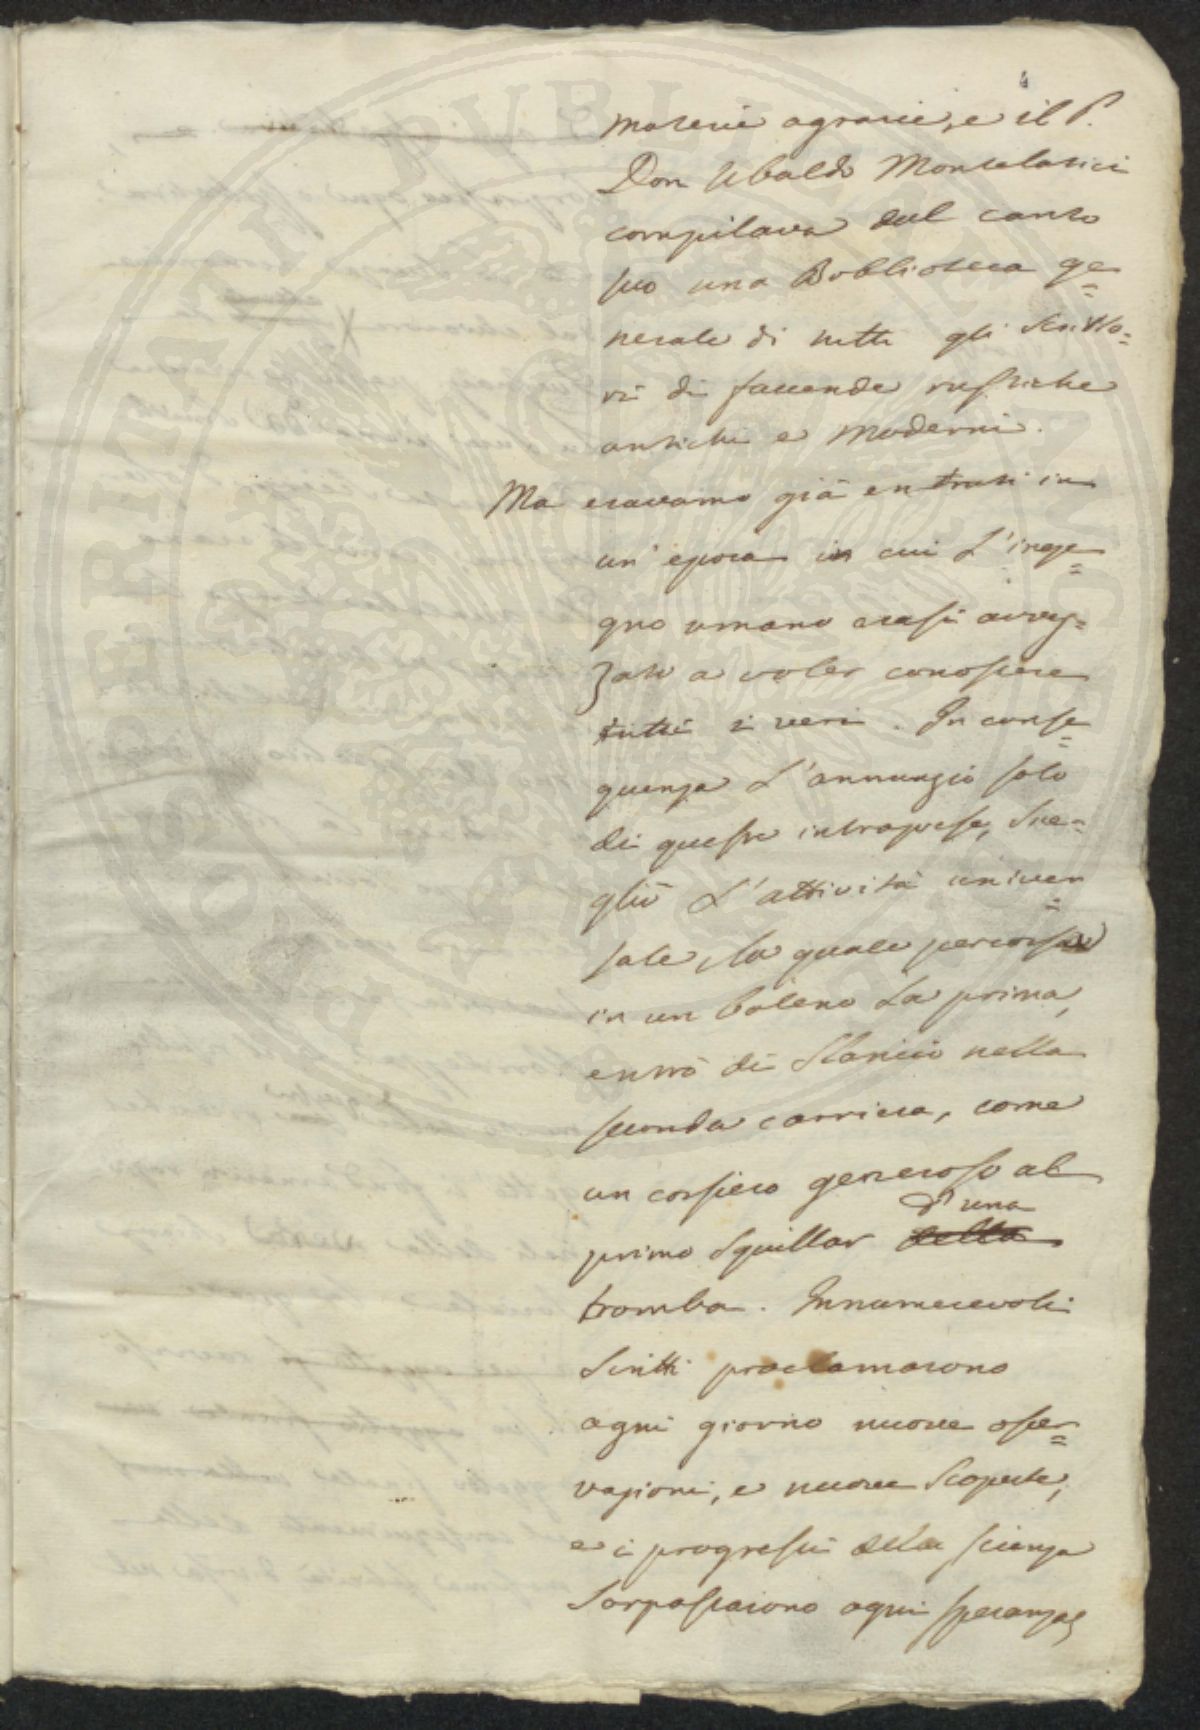 4
materie agrarie, e il P.
Don Ubaldo Montelatici
compilava dal canto
suo una Bobblioteca ge=
nerale di tutti gli Scritto=
ri di faccende rustiche
antichi e moderni.
Ma eravamo già entrati in
un' epoca in cui L'inge=
gno umano erasi avvez=
zato a voler conoscere
tutti i veri. In conse=
guenza L'annunzio solo
di queste intraprese, Sve=
gliò L'attività univer=
sale, la quale percorsa
in un baleno La prima,
entrò di Slancio nella
seconda carriera, come
un corsiero generoso al
d'una
primo Squillar della
tromba. Innumerevoli
Scritti proclamarono
ogni giorno nuove osser=
vazioni, e nuove Scoperte,
e i progressi della scienza
Sorpassarono ogni speranza